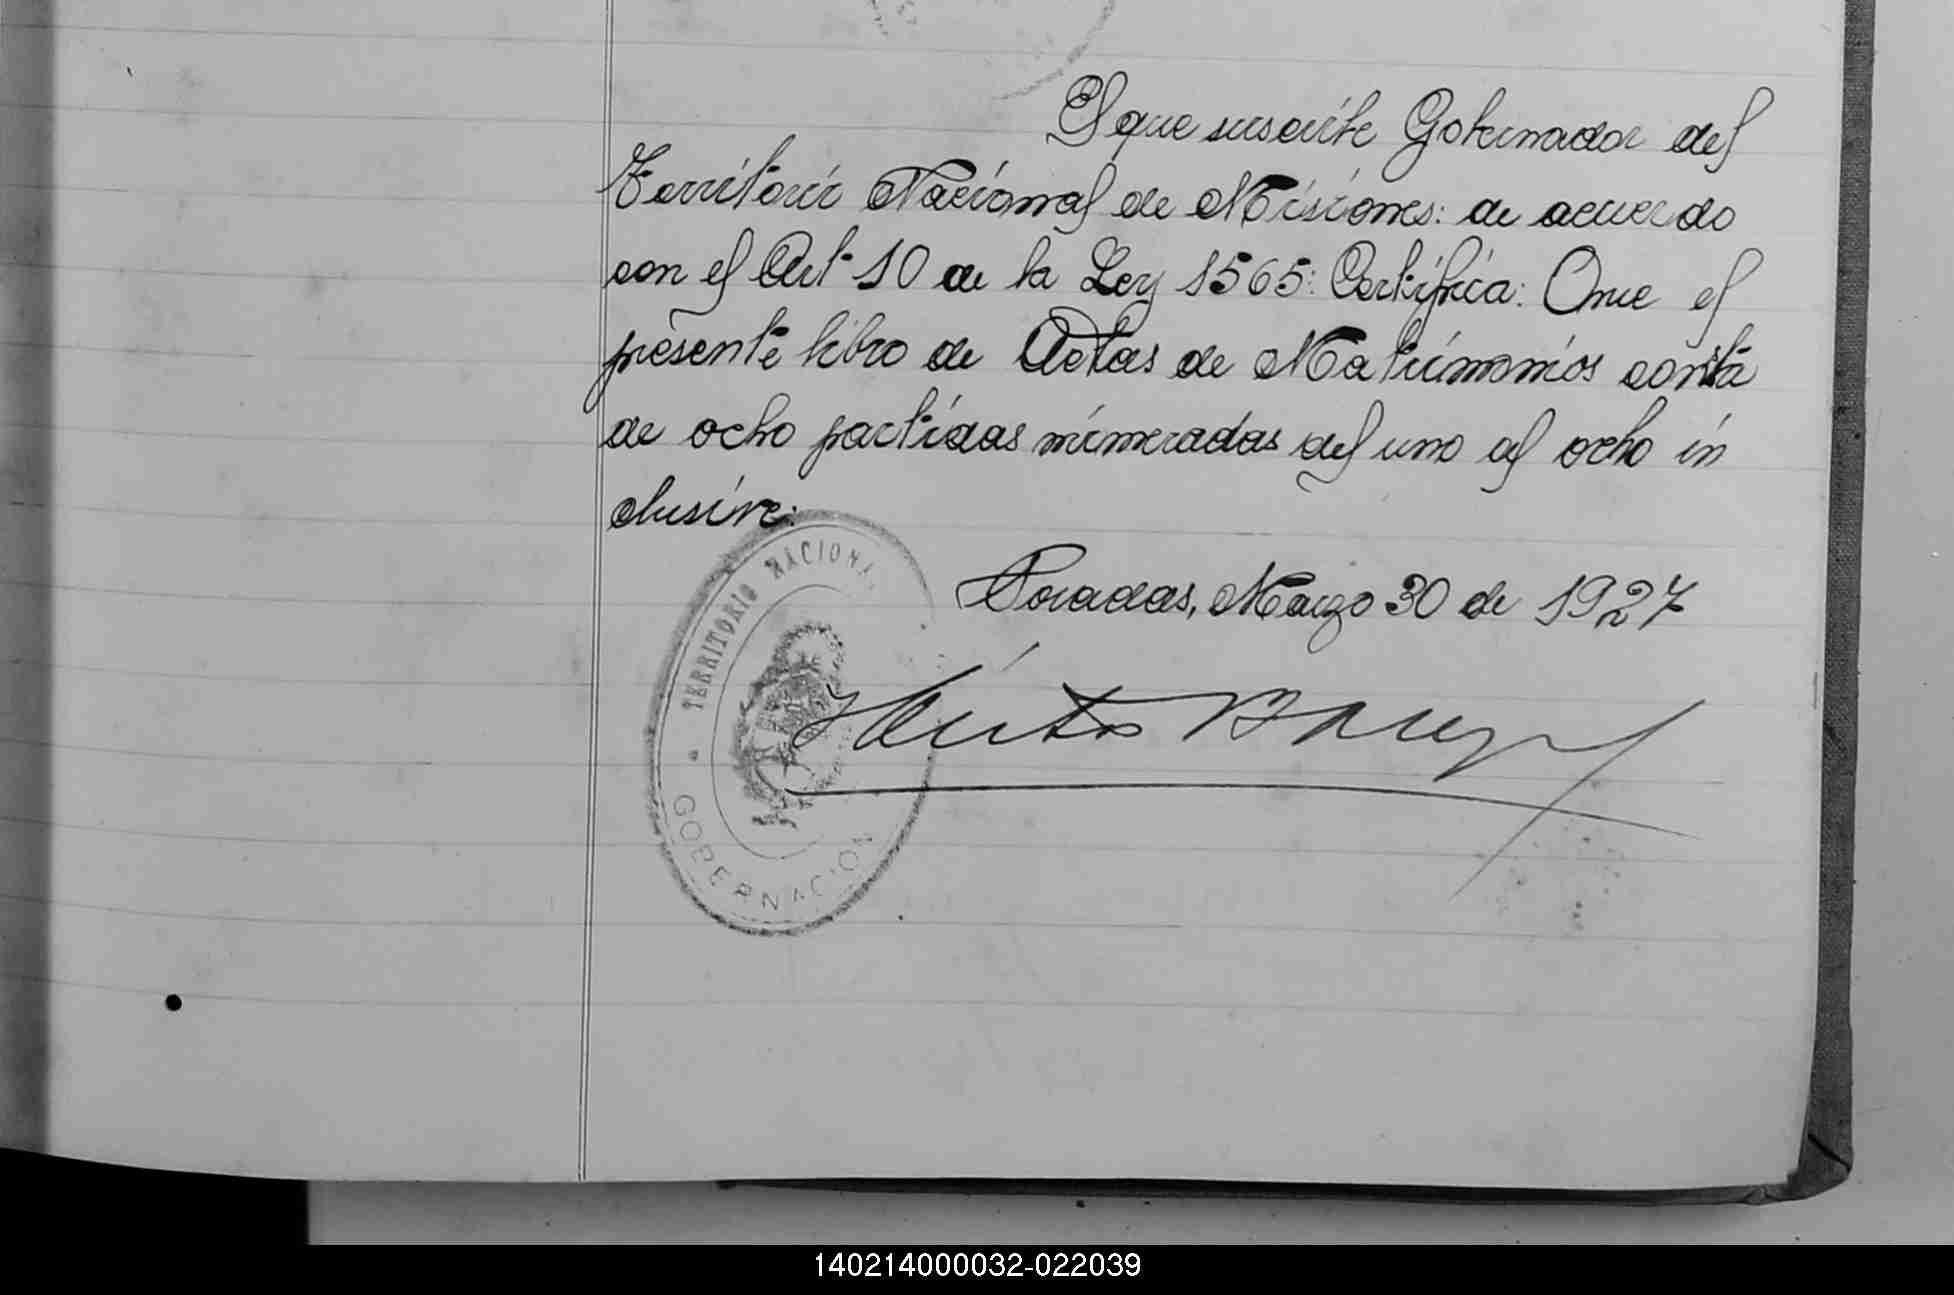 El que suscribe Gobernador del
Territorio Nacional de Misiones: de acuerdo
con el Art 10 de la Ley 1565: Certifica: Que el
presente libro de Actas de Matrimonios consta
de ocho partidas numeradas del uno al ocho in
clusive:
Posadas, Marzo 30 de 1927
Héctor Barreyro
TERRITORIO NACIONAL
GOBERNACION
140214000032-022039